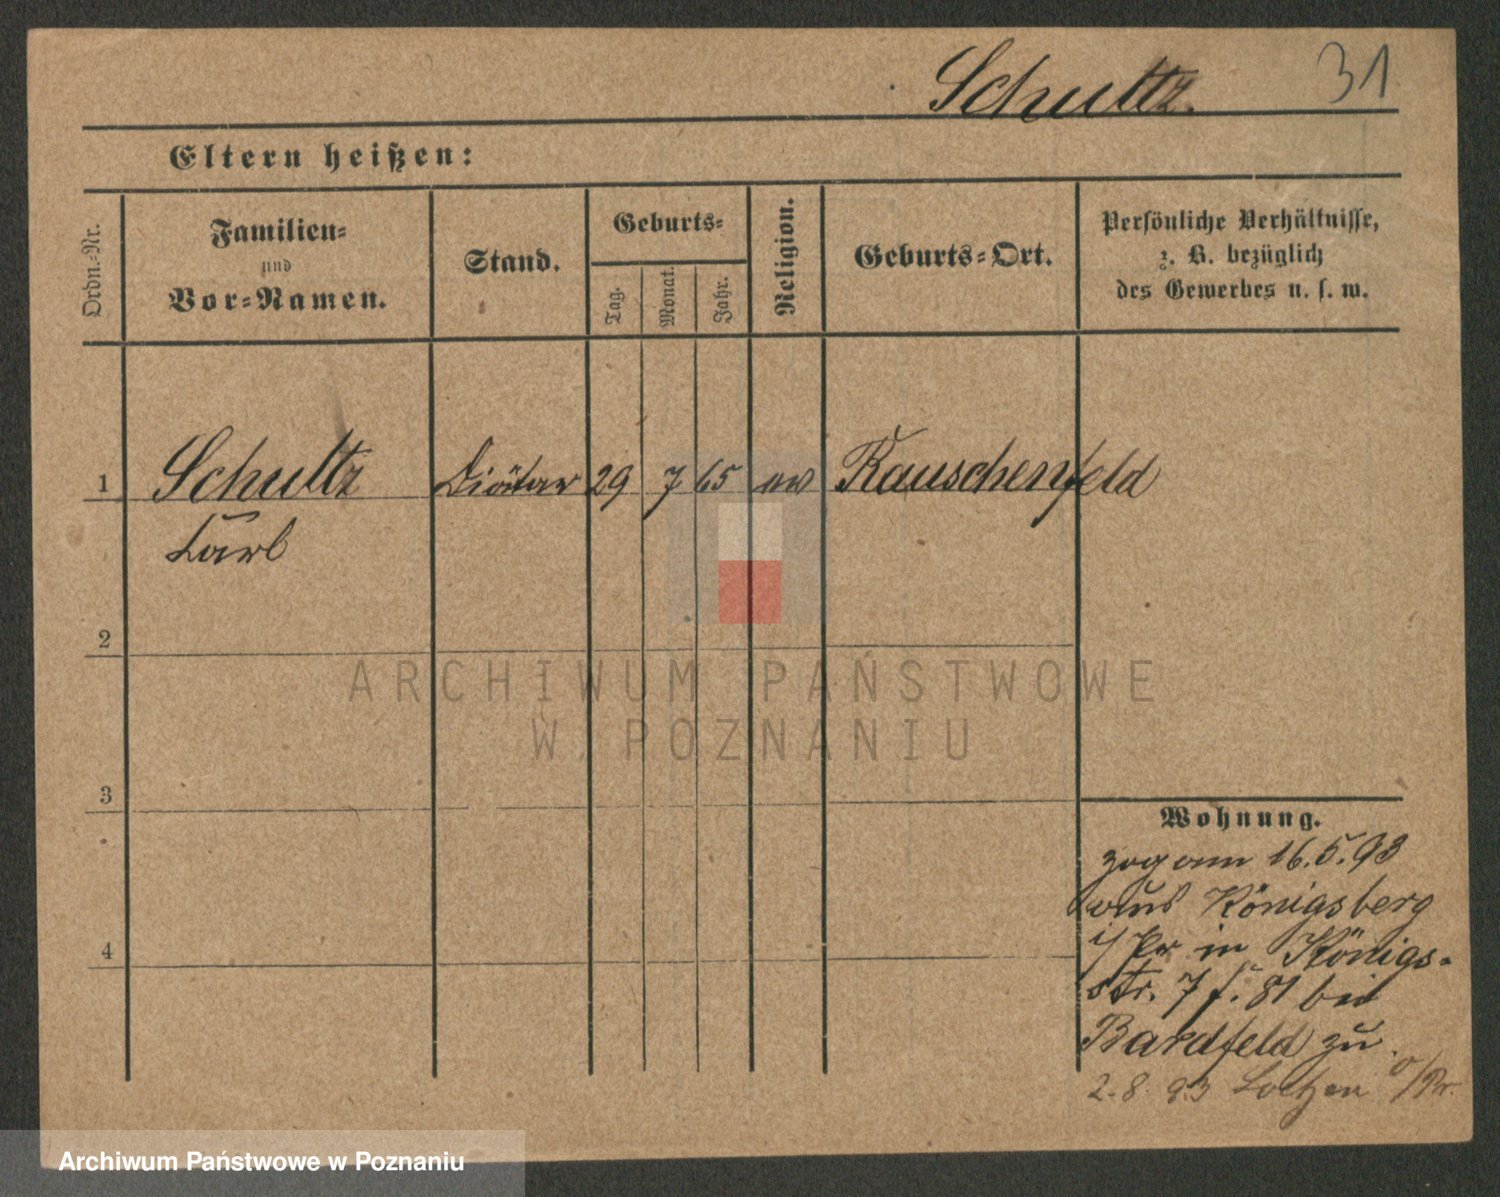 Schultz.
31
Eltern heißen:
Ordn.-Nr.
Familien-
und
Vor-Namen.
Stand.
Geburts-
Tag.
Monat.
Jahr.
Religion.
Geburts-Ort.
Persönliche Verhältnisse,
z. B. bezüglich
des Gewerbes u. s. w.
1 Schultz Diätar 29 7 65 ev Rauschenfeld
Carl
2
3
4
Wohnung.
zog am 16.5.93
aus Königsberg
i/Pr in Königs-
str. 7 f. 81 bei
Bardfeld zu.
2.8.93 Loetzen O/Pr.
ARCHIWUM PAŃSTWOWE
W POZNANIU
Archiwum Państwowe w Poznaniu